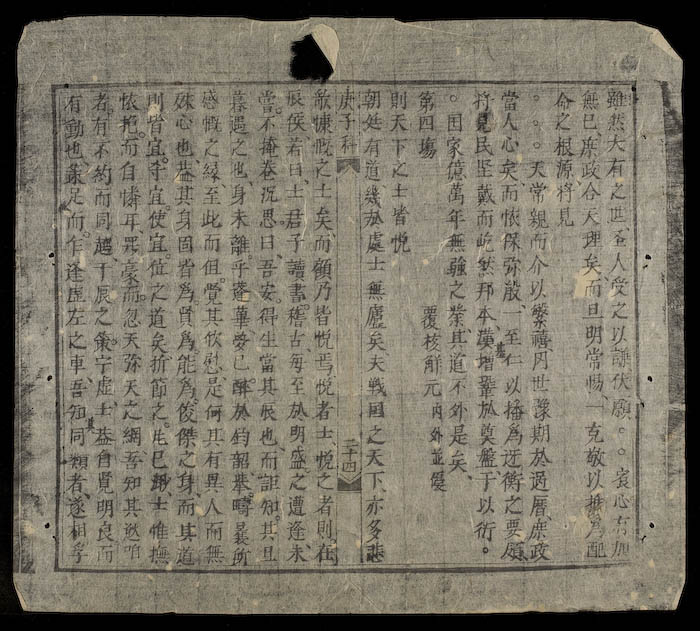 雖然大有之世圣人受之以謙伏願。。衷心有加
無已庶政合天理矣而旦明常惕一克敬以為配
命之根源將見
。。。天常親而介以繁禧同世豫期於過曆庶政
當人心矣而懷保弥殷一至仁以播為近衡之要領
將見民坚戴而屹然邦本漢增鞏於奠盤于以衍。
。国家億萬年無疆之業其道不外是矣
第四場
覆核觧元內外並優
則天下之士皆悦
朝廷有道幾於處士無廬矣夫戦国之天下亦多悲
庚子科
三十四
歌慷慨之士矣而顧乃皆悦焉悦者士悦之者則在
辰侯若曰士君子讀書稽古每至於明盛之遭逢未
當不掩卷沉思曰吾安得生當其辰也而詎知其旦
暮遇之也身未離乎蓬蓽夢已酣於鈞韶攀疇曩所
感慨之緣至此而但覺其忻慰是何其有異人而無
殊心也盖其身固皆為賢為能為俊傑之身而其道
則皆宜守宜使宜位之道矣折節之先已士惟撫
懷抱而自憐耳衆毫而忽天弥天之網吾知其逖
者有不約而同趨于辰之衡宇虚士盖自覺明良而
有動也足而作逢虚左之車吾知同類者遂相孚